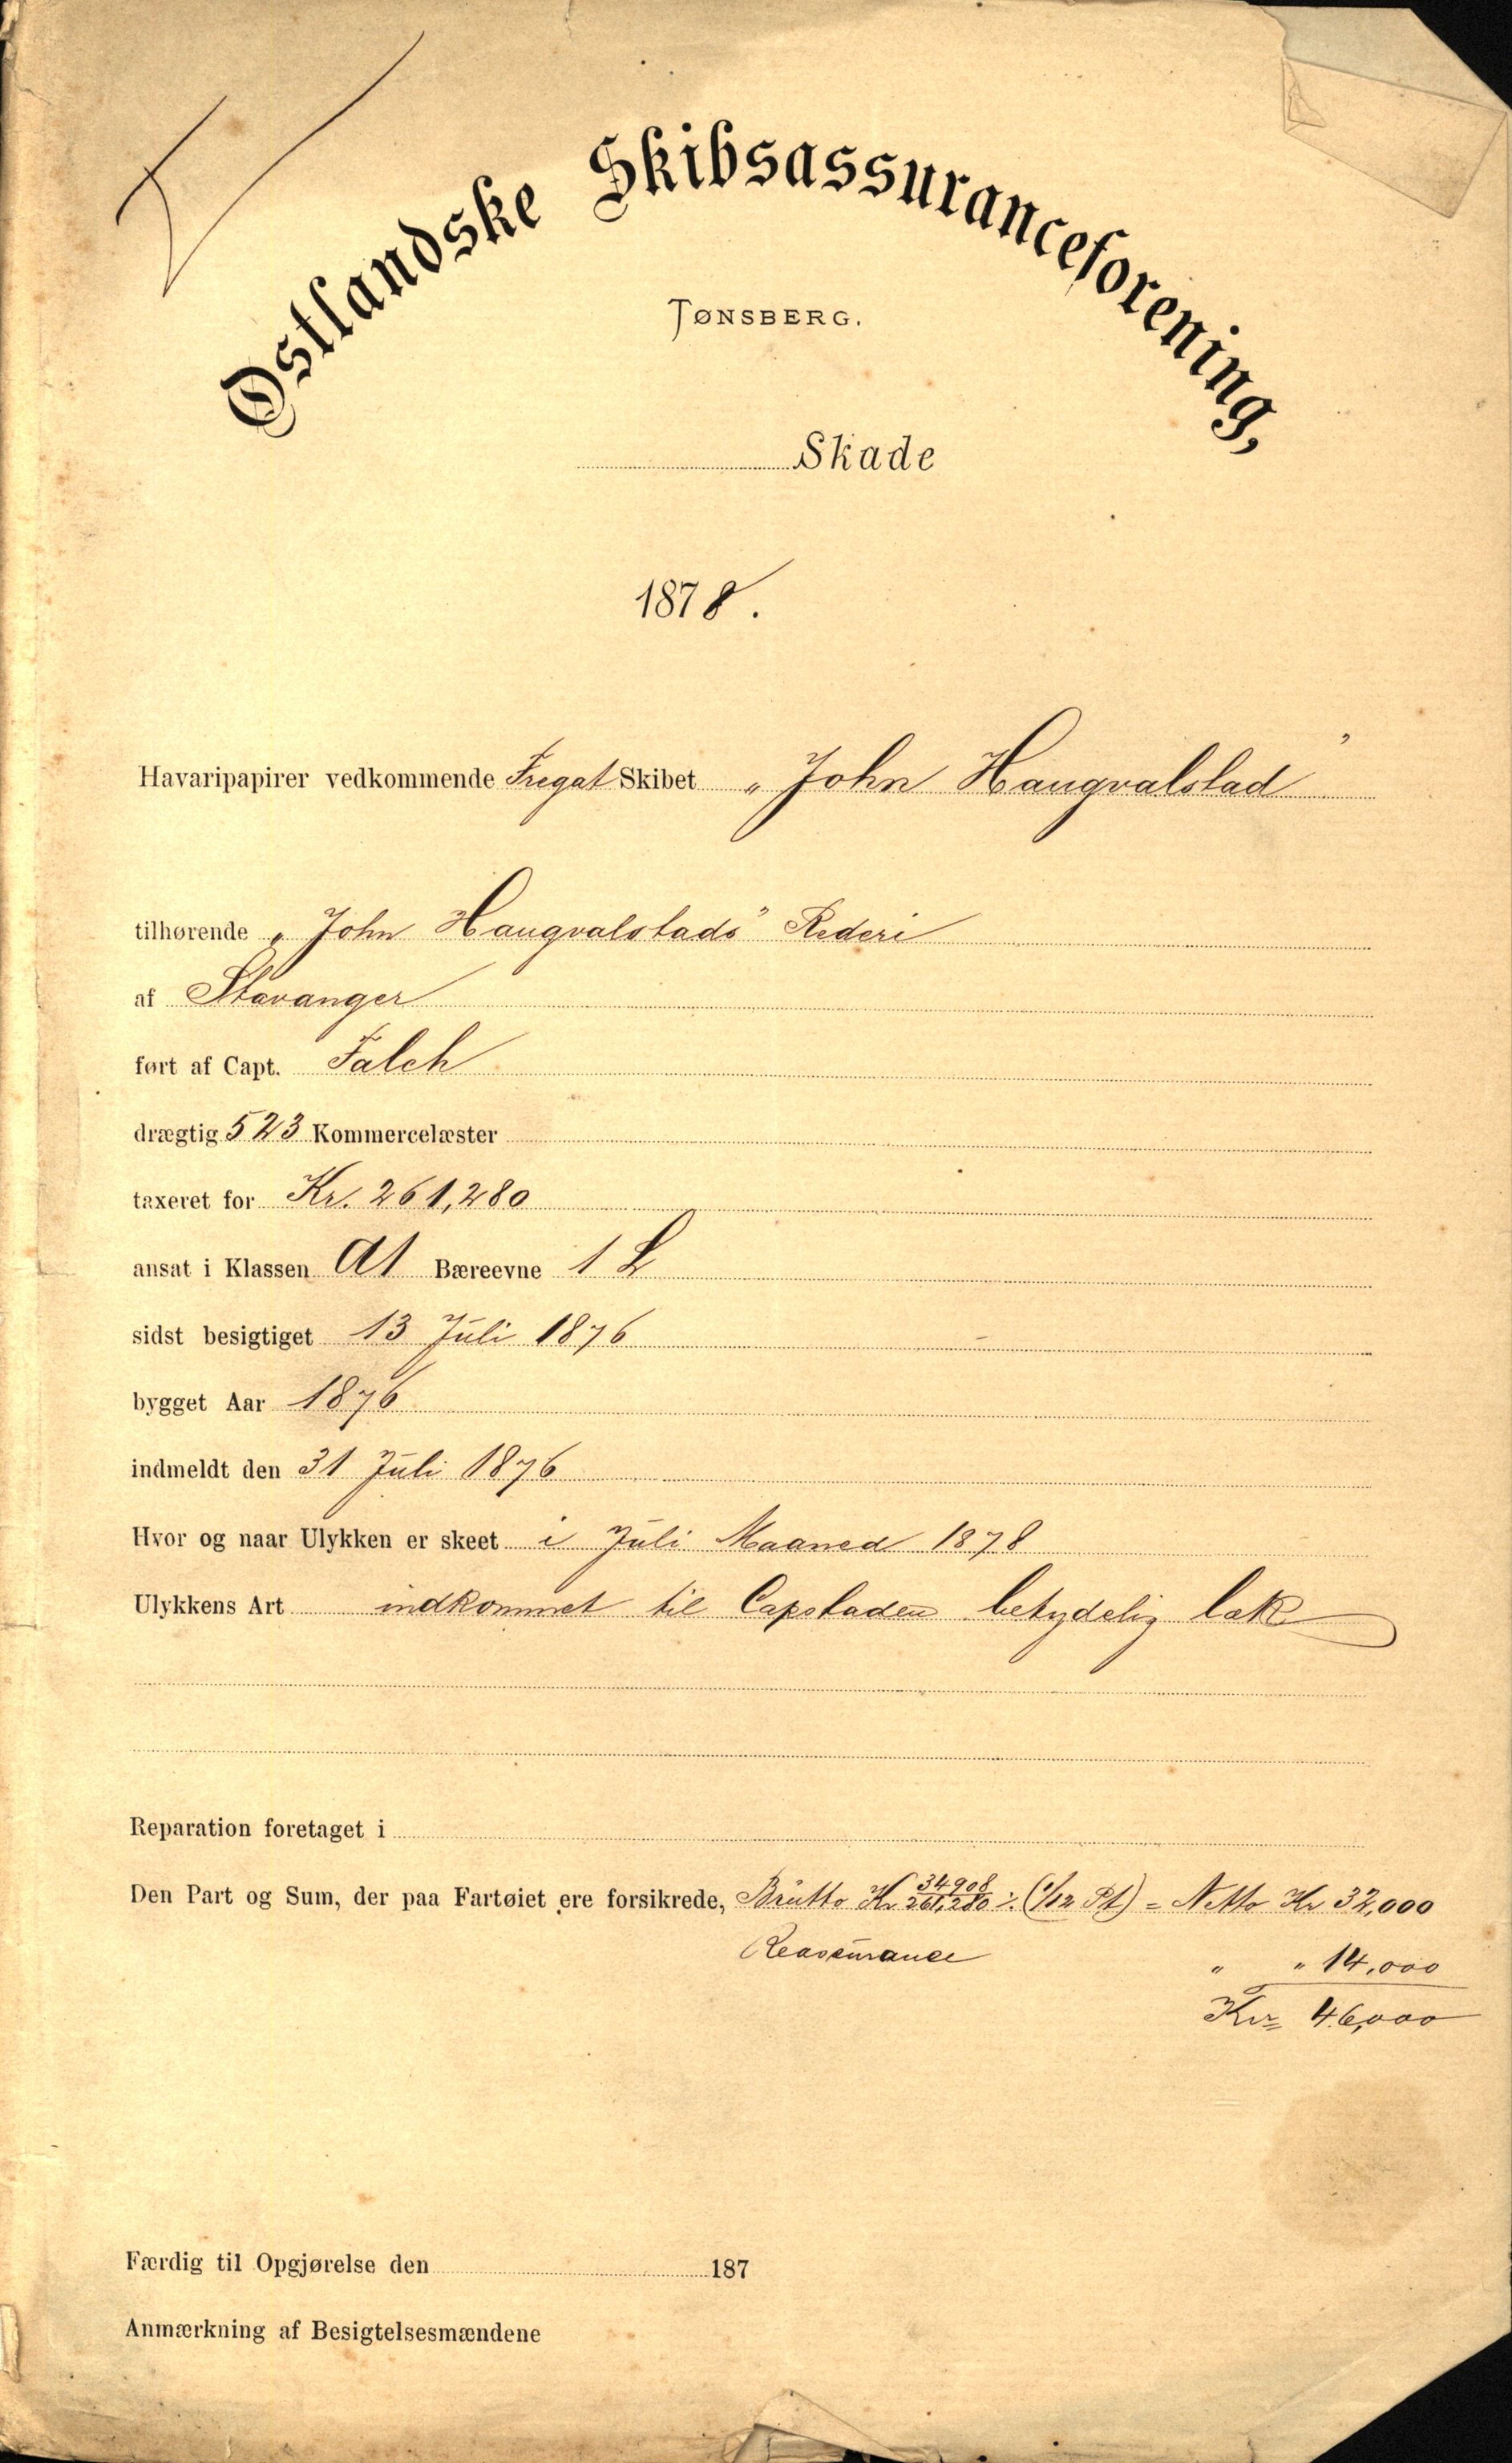 Østlandske Skibsassuranceforening,
TØNSBERG.
Skade
1878.
Havaripapirer vedkommende Fregat Skibet „John Haugvalstad”
tilhørende „John Haugvalstads” Rederi
af Stavanger
ført af Capt. Falch
drægtig 523 Kommercelæster
taxeret for Kr. 261,280
ansat i Klassen A1 Bæreevne 1 L
sidst besigtiget 13 Juli 1876
bygget Aar 1876
indmeldt den 31 Juli 1876
Hvor og naar Ulykken er skeet i Juli Maaned 1878
Ulykkens Art indkommet til Capstaden betydelig læk
Reparation foretaget i
34908
Den Part og Sum, der paa Fartøiet ere forsikrede, Brutto Kr 261,280 ÷ (1/12 Pt) = Netto Kr 32,000
Reassurance " " 14,000
Kr= 46,000
Færdig til Opgjørelse den 187
Anmærkning af Besigtelsesmændene